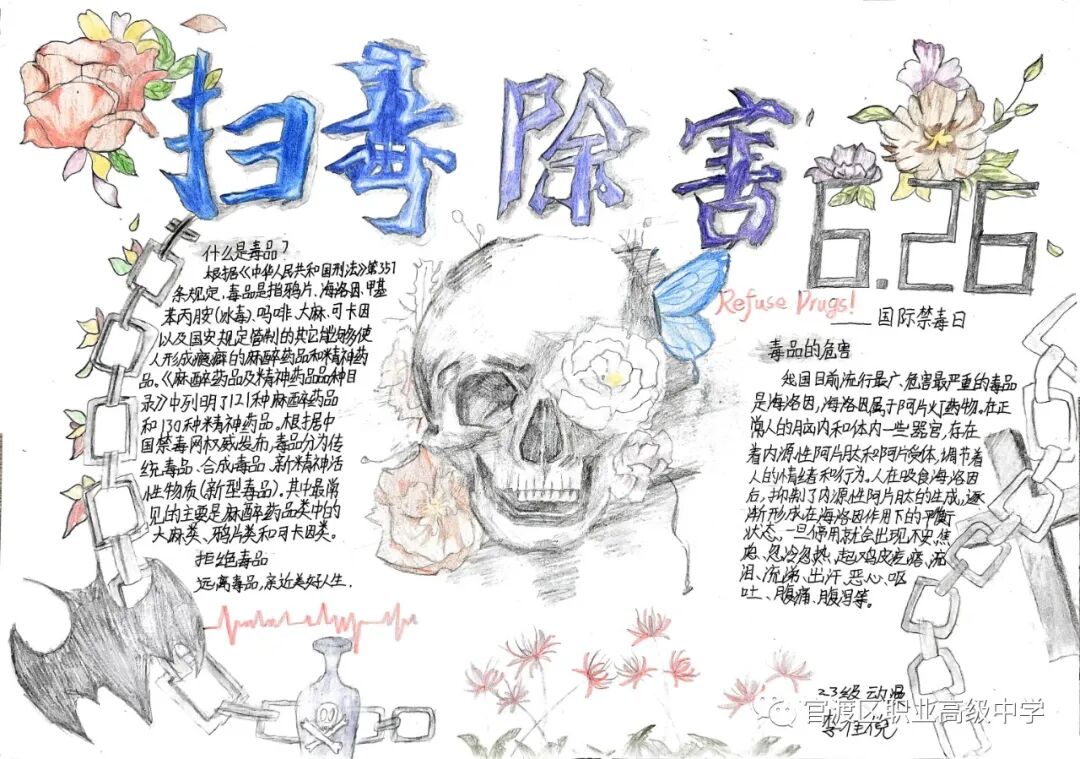 扫毒除害
6.26
Refuse Drugs!
——国际禁毒日
什么是毒品?
根据《中华人民共和国刑法》第357
条规定,毒品是指鸦片、海洛因、甲基
苯丙胺(冰毒)、吗啡、大麻、可卡因
以及国安规定管制的其它能够使
人形成瘾癖的麻醉药品和精神药
品。《麻醉药品及精神药品品种目
录》中列明了121种麻醉药品
和130种精神药品。根据中
国禁毒网权威发布,毒品分为传
统毒品、合成毒品、新精神活
性物质(新型毒品)。其中最常
见的主要是麻醉药品类中的
大麻类、鸦片类和可卡因类。
拒绝毒品
远离毒品,亲近美好人生.
毒品的危害
我国目前流行最广、危害最严重的毒品
是海洛因,海洛因属于阿片灯药物。在正
常人的脑内和体内一些器官,存在
着内源性阿片肽和阿片受体,调节着
人的情绪和行为。人在吸食海洛因
后,抑制了内源性阿片肽的生成,逐
渐形成在海洛因作用下的平衡
状态。一旦停用就会出现不安、焦
虑、忽冷忽热、起鸡皮疙瘩、流
泪、流涕、出汗、恶心、呕
吐、腹痛、腹泻等。
23级动漫
官渡区职业高级中学
李佳倪